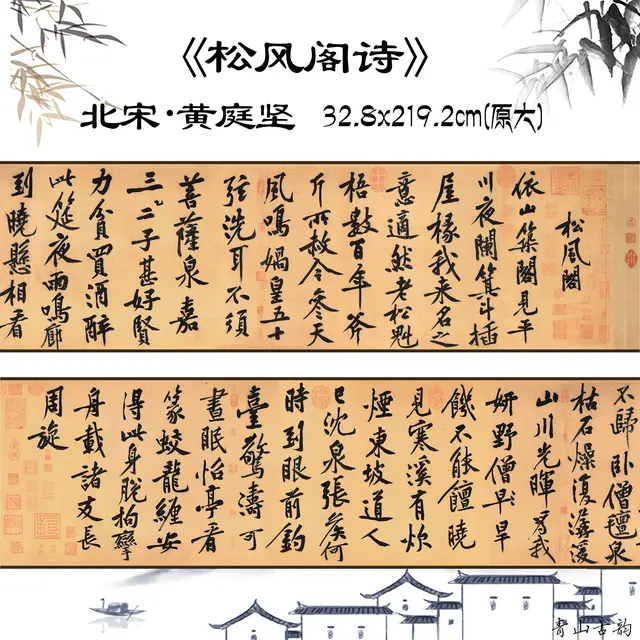 《松风阁诗》
北宋·黄庭坚 32.8x219.2cm(原大)
松風閣
依山築閣見平
川夜闌箕斗插
屋椽我來名之
意適然老松魁
梧數百年斧
斤所赦今參天
風鳴媧皇五十
弦洗耳不須
菩薩泉嘉
三二子甚好賢
力貧買酒醉
此筵夜雨鳴廊
到曉懸相看
不歸卧僧氈泉
枯石燥復潺湲
山川光暉為我
妍野僧早旱
饑不能饘曉
見寒溪有炊
煙東坡道人
已沈泉張侯何
時到眼前釣
臺驚濤可
晝眠怡亭看
篆蛟龍纏安
得此身脫拘攣
舟載諸友長
周旋
青山古韵